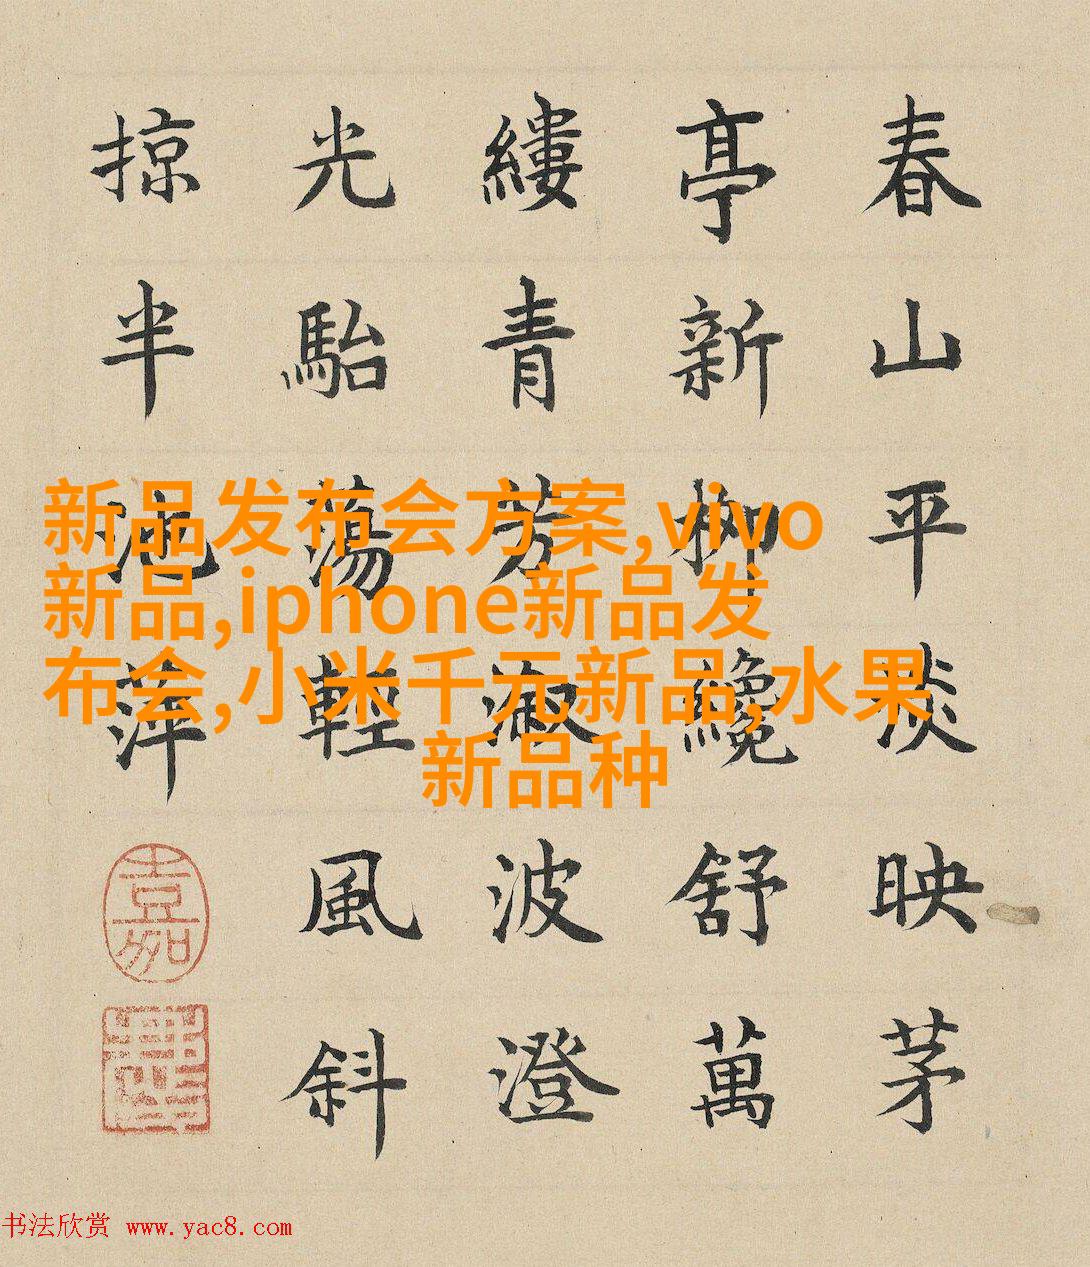 春山平淡映茅
亭新柳纜舒萬
縷青芳溆波澄
光駘蕩輕風斜
掠半池萍
嘉
新品发布会方案,vivo
新品,iphone新品发
布会,小米千元新品,水果
新品种
书法欣赏 www.yac8.com